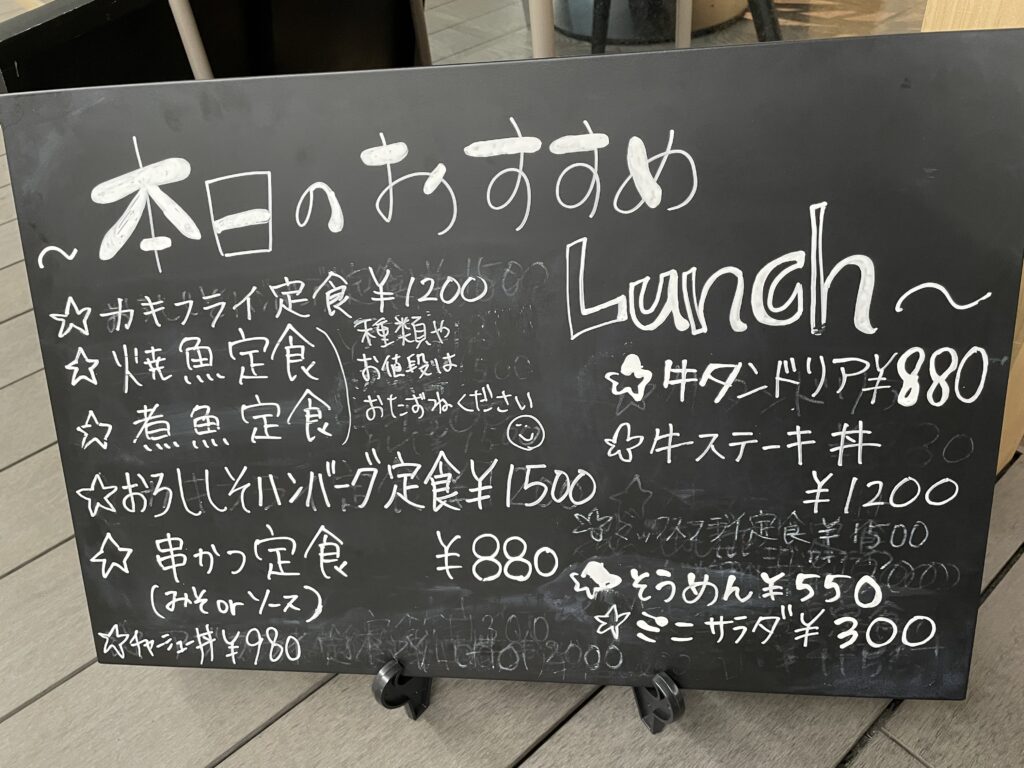 ~本日のおすすめ
Lunch~
☆カキフライ定食 ¥1200
☆焼魚定食
☆煮魚定食
種類や
お値段は
おたずねください
☆おろししそハンバーグ定食¥1500
☆串かつ定食 ¥880
(みそorソース)
☆チャーシュー丼¥980
☆牛タンドリア¥880
☆牛ステーキ丼
¥1200
☆ミックスフライ定食¥1500
☆そうめん¥550
☆ミニサラダ¥300